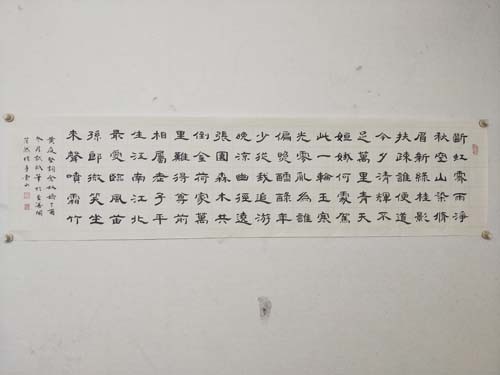 斷虹霽雨淨
秋空山染脩
眉新綠桂影
扶疎誰便道
今夕清輝不
足萬里青天
姮娥何處駕
此一輪玉寒
光零亂為誰
偏照醽醁年
少從我追游
晚涼幽徑遶
張園森木共
倒金荷家萬
里難得尊前
相屬老子平
生江南江北
最愛臨風笛
孫郎微笑坐
來聲噴霜竹
黃庭堅詞念奴嬌丁酉
冬月試紙筆於